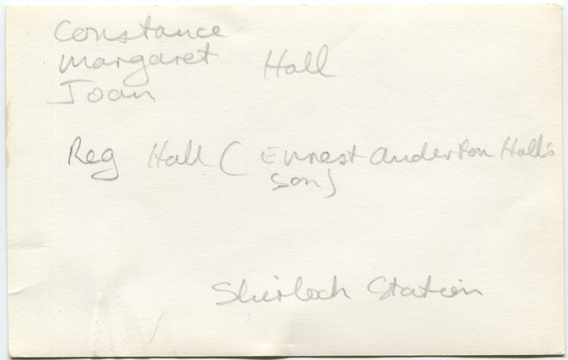 Constance
Margaret Hall
Joan
Reg Hall (Ernest Anderton Hall's
son)
Shirloch Station